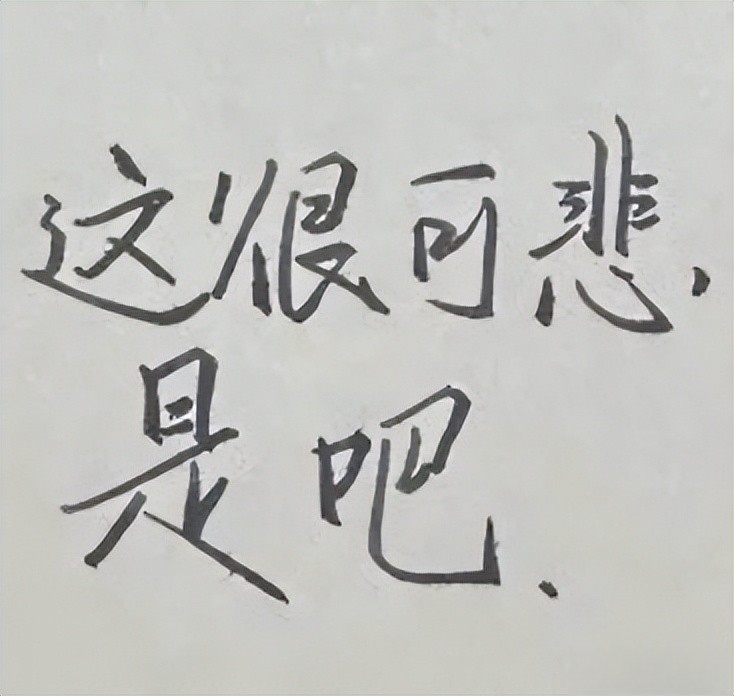 这很可悲.
是吧.